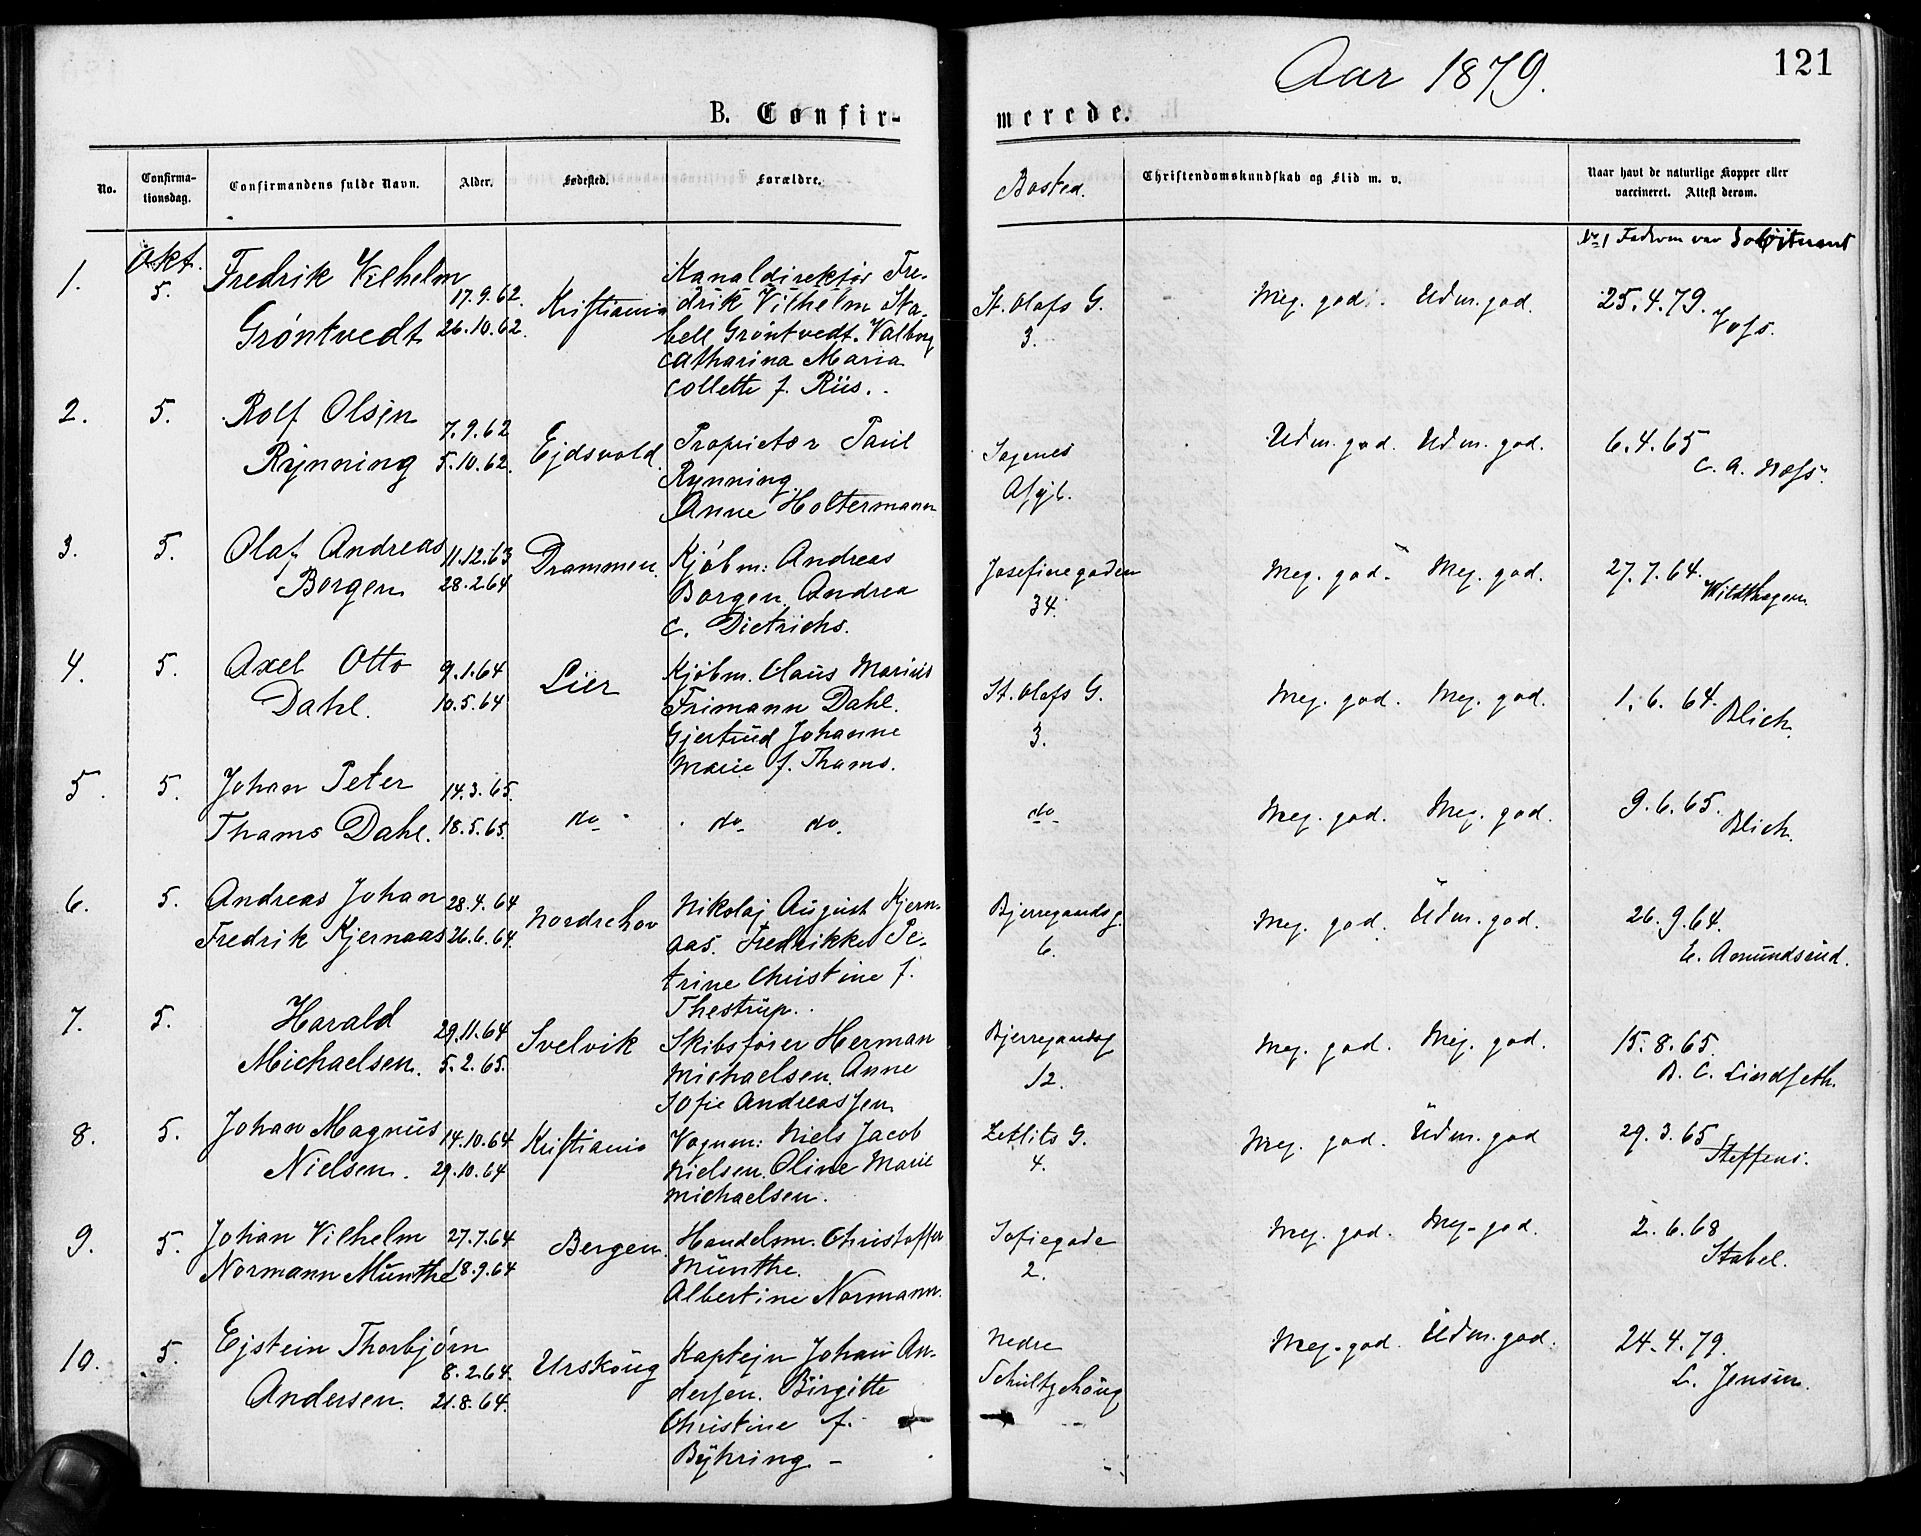 Aar 1879.
121
B. Confir-
merede.
No.
Confirma-
tionsdag.
Confirmandens fulde Navn.
Alder.
Fødested.
Forældre.
Bosted.
Christendomskundskab og Flid m. v.
Naar havt de naturlige Kopper eller
vaccineret. Attest derom.
No 1 Faderen var
1.
Okt.
5.
Fredrik Vilhelm
Gröntvedt
17.9.62.
26.10.62.
Kristiania
Kanaldirektör Fre-
drik Vilhelm Sta-
bell Gröntvedt. Valborg
Catharina Maria
Collette f. Riis.
St. Olafs G.
3.
Meg. god. Udm. god.
25.4.79.
Voss.
2.
5.
Rolf Olsen
Rynning
7.9.62
5.10.62.
Ejdsvold.
Proprietær Paul
Rynning.
Anne Holtermann
Sagenes
Asyl.
Udm. god. Udm. god.
6.4.65
C. A. Næss.
3.
5.
Olaf Andreas
Borgen
11.12.63
28.2.64
Drammen.
Kjöbm: Andreas
Borgen. Andrea
C. Dietrichs.
Josefinegaden
34.
Meg. god. Meg. god.
27.7.64.
Wildthagen
4.
5.
Axel Otto
Dahl.
9.1.64
10.5.64
Lier
Kjöbm. Claus Marius
Frimann Dahl.
Gjertrud Johanne
Marie f. Thams.
St. Olafs G.
3.
Meg. god. Meg. god.
1.6.64.
Blich.
5.
5.
Johan Peter
Thams Dahl.
14.3.65.
18.5.65.
do
do do.
do
Meg. god. Meg. god.
9.6.65.
Blich.
6.
5.
Andreas Johan
Fredrik Kjernaas
28.4.64
26.6.64.
Nordrehov
Nikolaj August Kjern-
aas. Fredrikke Pe-
trine Christine f.
Thestrup.
Bjerregaardsg.
6.
Meg. god. Udm. god.
26.9.64.
E. Amundsrud.
7.
5.
Harald
Michaelsen.
29.11.64
5.2.65.
Svelvik
Skibsförer Herman
Michaelsen. Anne
Sofie Andreassen
Bjerregaardsg
12.
Meg. god. Meg. god.
15.8.65.
B. C. Lindseth.
8.
5.
Johan Magnus
Nielsen.
14.10.64
29.10.64
Kristiania
Vognm: Niels Jacob
Nielsen. Oline Marie
Michaelsen.
Zetlits G.
4.
Meg. god. Udm. god
29.3.65
Steffens.
9.
5.
Johan Vilhelm
Normann Munthe
27.7.64
18.9.64
Bergen.
Handelsm. Christoffer
Munthe.
Albertine Normann.
Sofiegade
2.
Meg. god. Meg. god.
2.6.68
Stabel.
10.
5.
Ejstein Thorbjörn
Andersen.
8.2.64.
21.8.64.
Urskoug
Kaptejn Johan An-
dersen. Birgitte
Christine f.
Byhring
Nedre
Schultzehoug
Meg. god. Udm. god.
24.4.79.
L. Jensen.